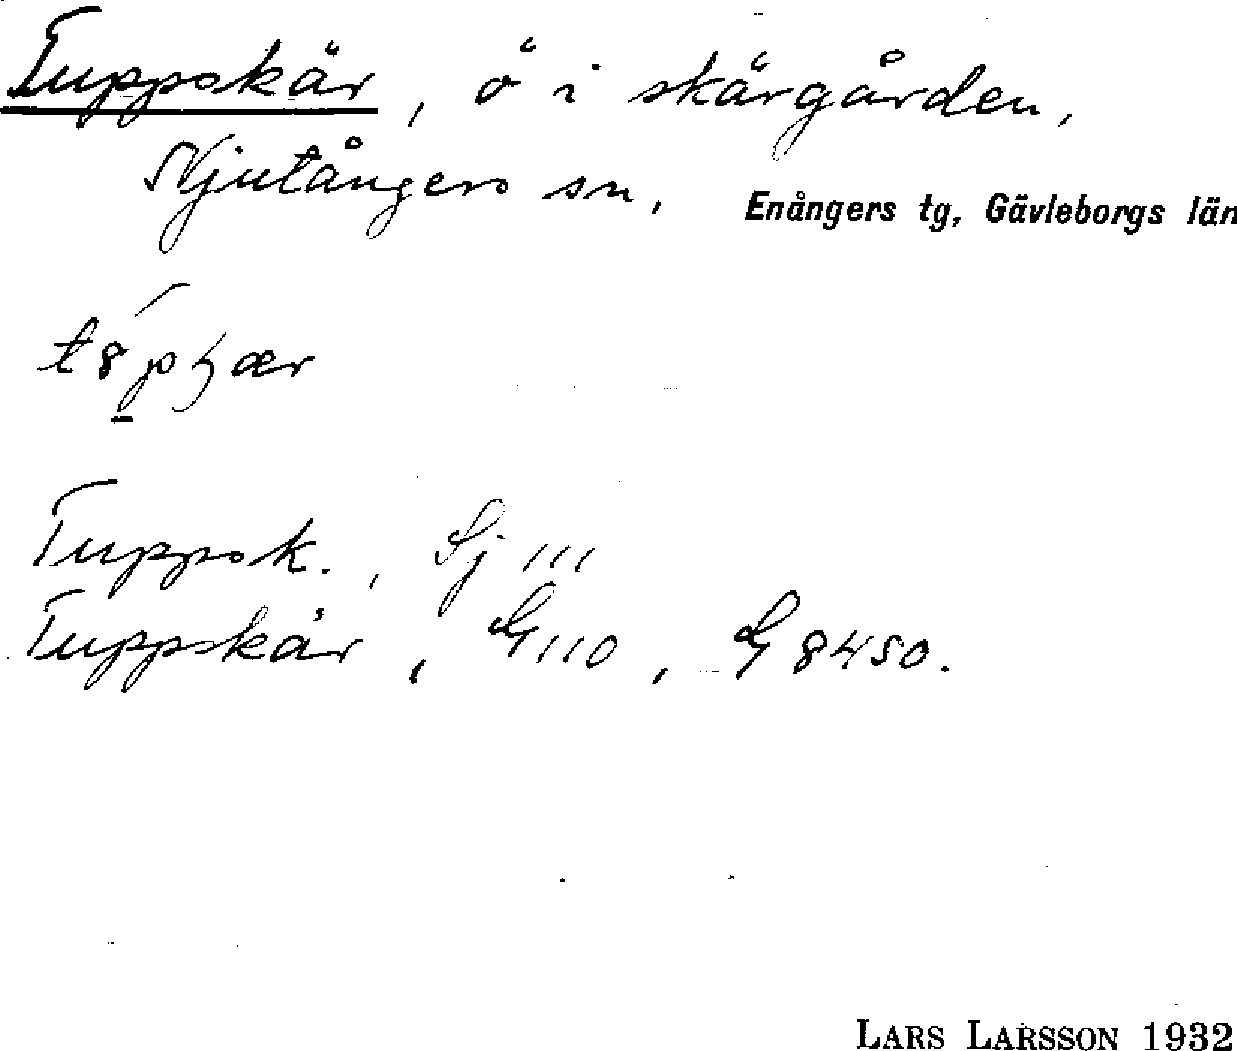 Tuppskär, ö i skärgården,
Njutångers sn, Enångers tg, Gävleborgs län
Tuppsk., Sj 111
Tuppskär, G 110, G 8450.
LARS LARSSON 1932